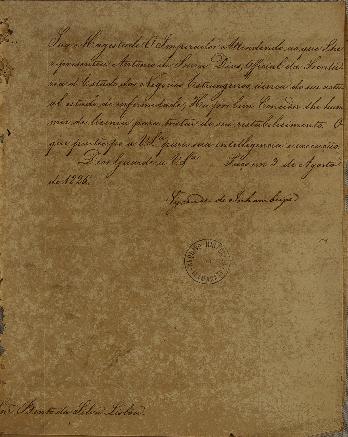 Sua Magestade O Imperador Attendendo, ao que Lhe
representou Antonio de Souza Dias, Official da Secreta
ria d'Estado dos Negocios Estrangeiros, acerca do seu actu
al estado de enfermidade; Ha por bem Conceder-lhe hum
mez de licença para tratar do seu restabelecimento. O
que participo a V.Sa. para sua intelligencia e execução.
Deos Guarde a V.Sa. Paço em 9 de Agosto
de 1826.
Visconde de Inhambupe
Snr. Bento da Silva Lisboa.